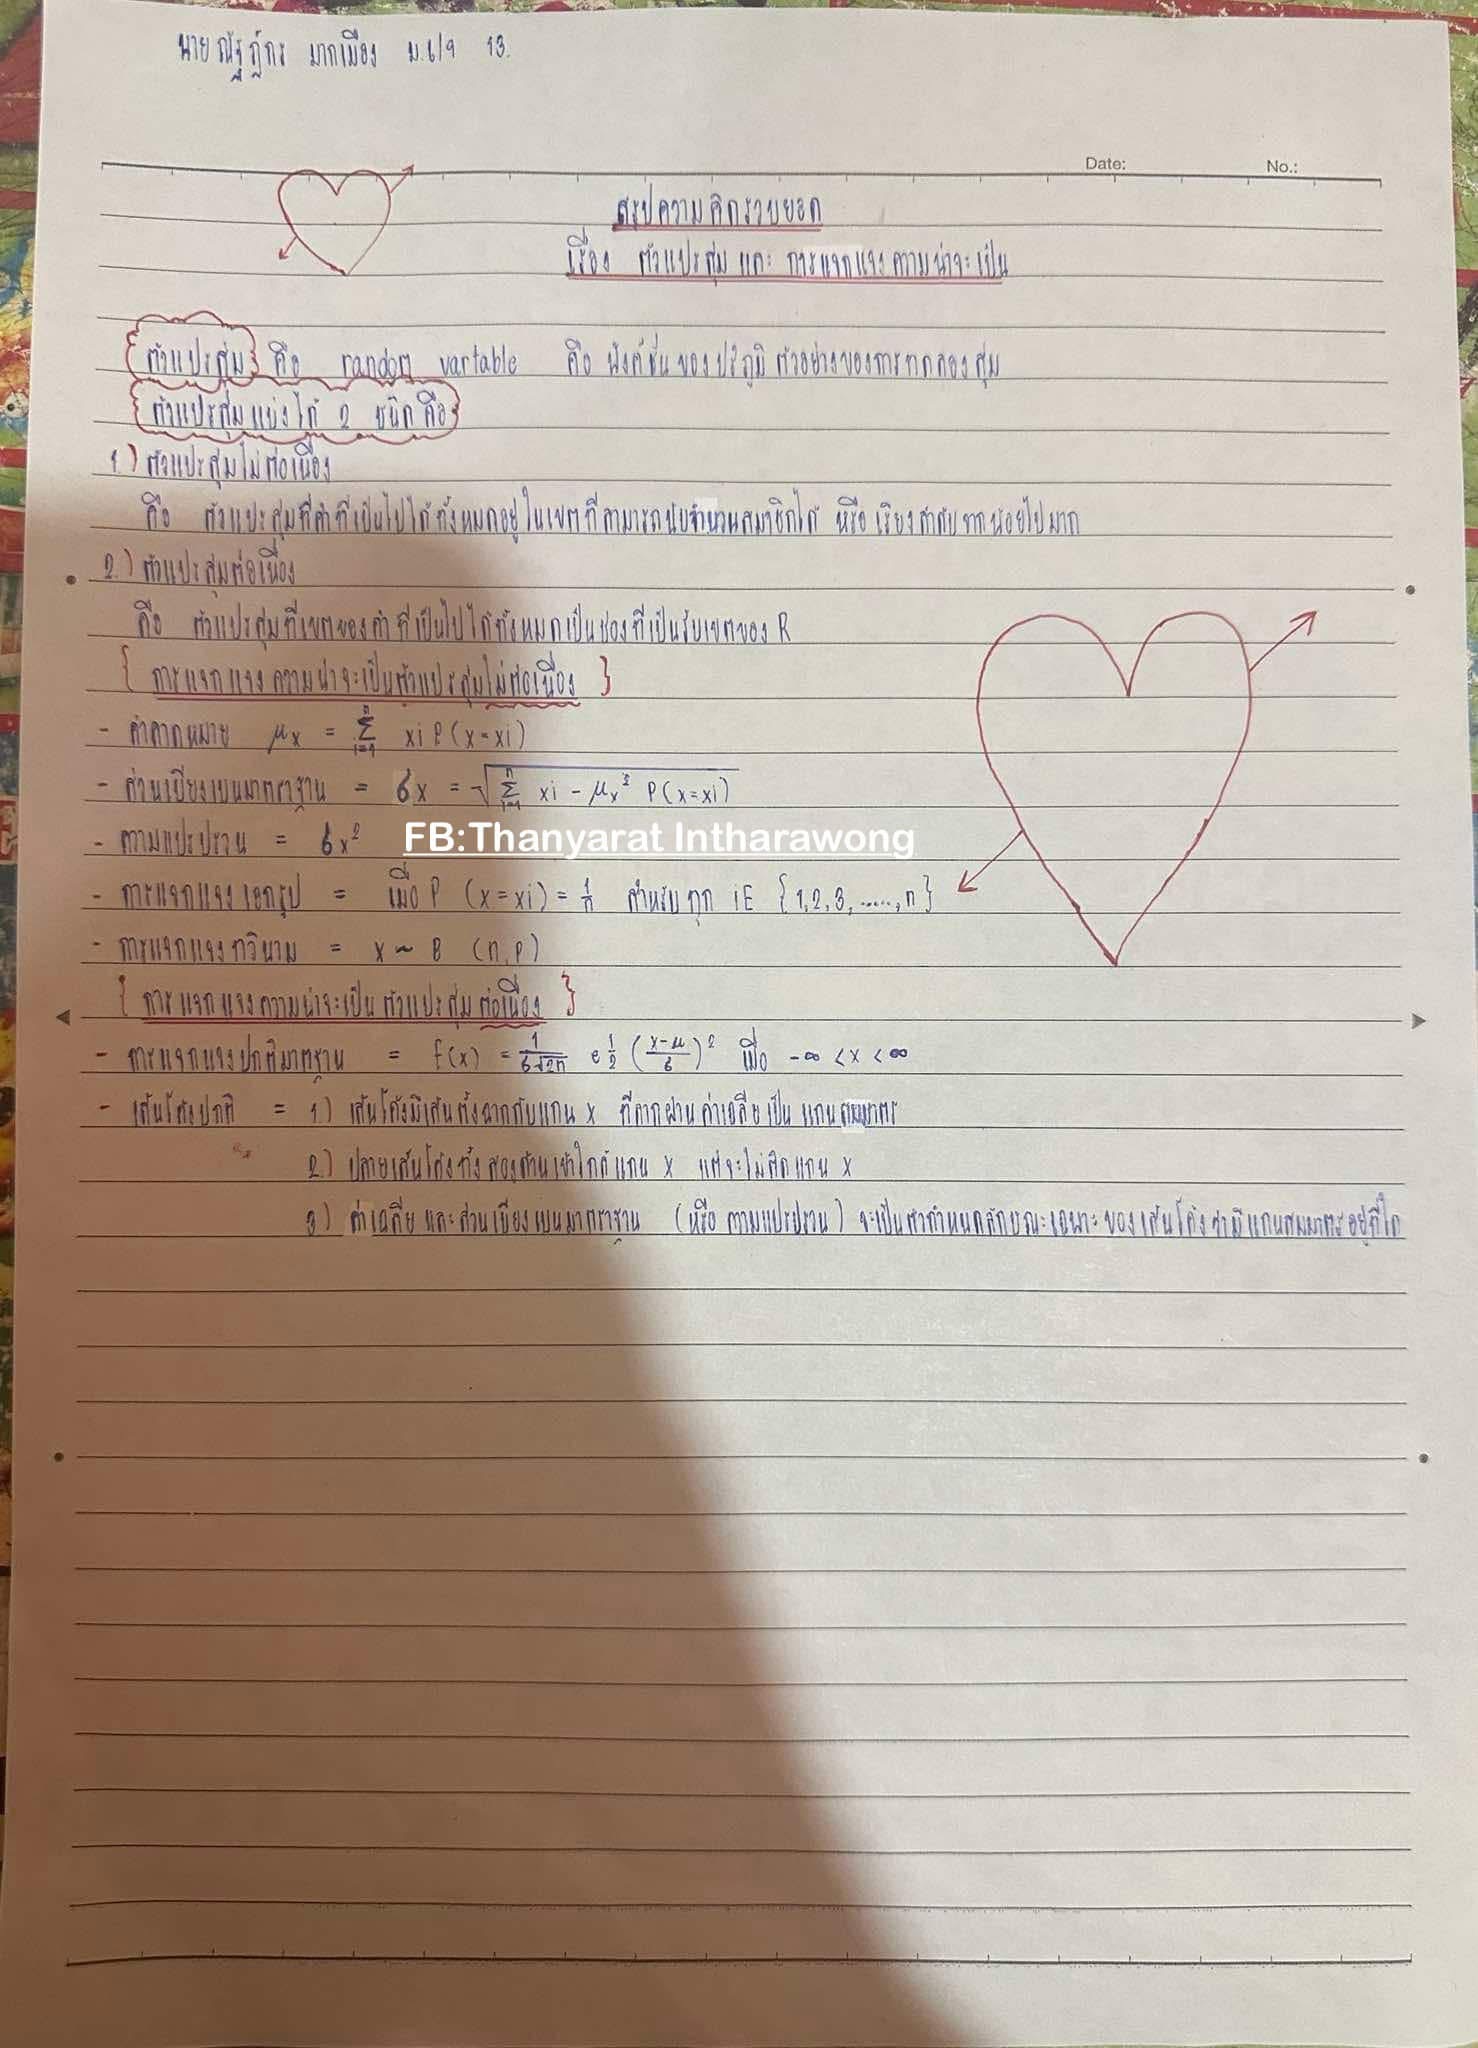 นายณัฐฎ์กร มากเมือง ม.6/9 13.
Date: No.:
สรุปความคิดรวบยอด
เรื่อง ตัวแปรสุ่ม และ การแจกแจงความน่าจะเป็น
ตัวแปรสุ่ม คือ random variable คือ ฟังก์ชั่นของปริภูมิตัวอย่างของการทดลองสุ่ม
ตัวแปรสุ่มแบ่งได้ 2 ชนิดคือ
1.) ตัวแปรสุ่มไม่ต่อเนื่อง
คือ ตัวแปรสุ่มที่ค่าที่เป็นไปได้ทั้งหมดอยู่ในเซตที่สามารถนับจำนวนสมาชิกได้ หรือ เรียงลำดับจากน้อยไปมาก
2.) ตัวแปรสุ่มต่อเนื่อง
คือ ตัวแปรสุ่มที่เซตของค่าที่เป็นไปได้ทั้งหมดเป็นช่วงที่เป็นสับเซตของ R
{ การแจกแจงความน่าจะเป็นตัวแปรสุ่มไม่ต่อเนื่อง }
- ค่าคาดหมาย μx = n Σ i=1 xi P(x=xi)
- ส่วนเบี่ยงเบนมาตราฐาน = 6x = √ n Σ i=1 xi - μx² P(x=xi)
- ความแปรปรวน = 6x²
FB:Thanyarat Intharawong
- การแจกแจงเอกรูป = เมื่อ P (x=xi) = 1/n สำหรับทุก iE {1,2,3,.....,n}
- การแจกแจงทวินาม = x ~ B (n,P)
{ การแจกแจงความน่าจะเป็น ตัวแปรสุ่ม ต่อเนื่อง }
- การแจกแจงปกติมาตรฐาน = f(x) = 1/6√2π e ½ (x-μ/6)² เมื่อ -∞ < x < ∞
- เส้นโค้งปกติ = 1) เส้นโค้งมีเส้นตั้งฉากกับแกน x ที่ลากผ่านค่าเฉลี่ยเป็น แกนสมมาตร
2.) ปลายเส้นโค้งทั้งสองด้านเข้าใกล้แกน x แต่จะไม่ตัดแกน x
3) ค่าเฉลี่ย และส่วนเบี่ยงเบนมาตราฐาน (หรือ ความแปรปรวน) จะเป็นตัวกำหนดลักษณะเฉพาะ ของเส้นโค้งว่ามีแกนสมมาตรอยู่ที่ใด